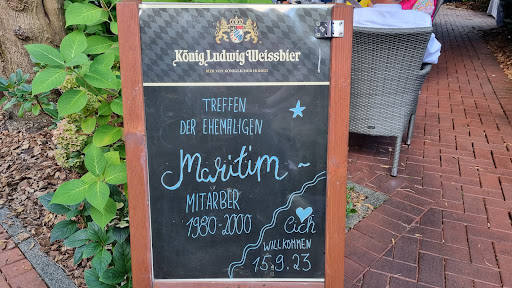 König Ludwig Weissbier
BIER VON KÖNIGLICHER HOHEIT
TREFFEN
DER EHEMALIGEN
Maritim ~
MITARBER
1980-2000
Eich
WILLKOMMEN
15.9.23